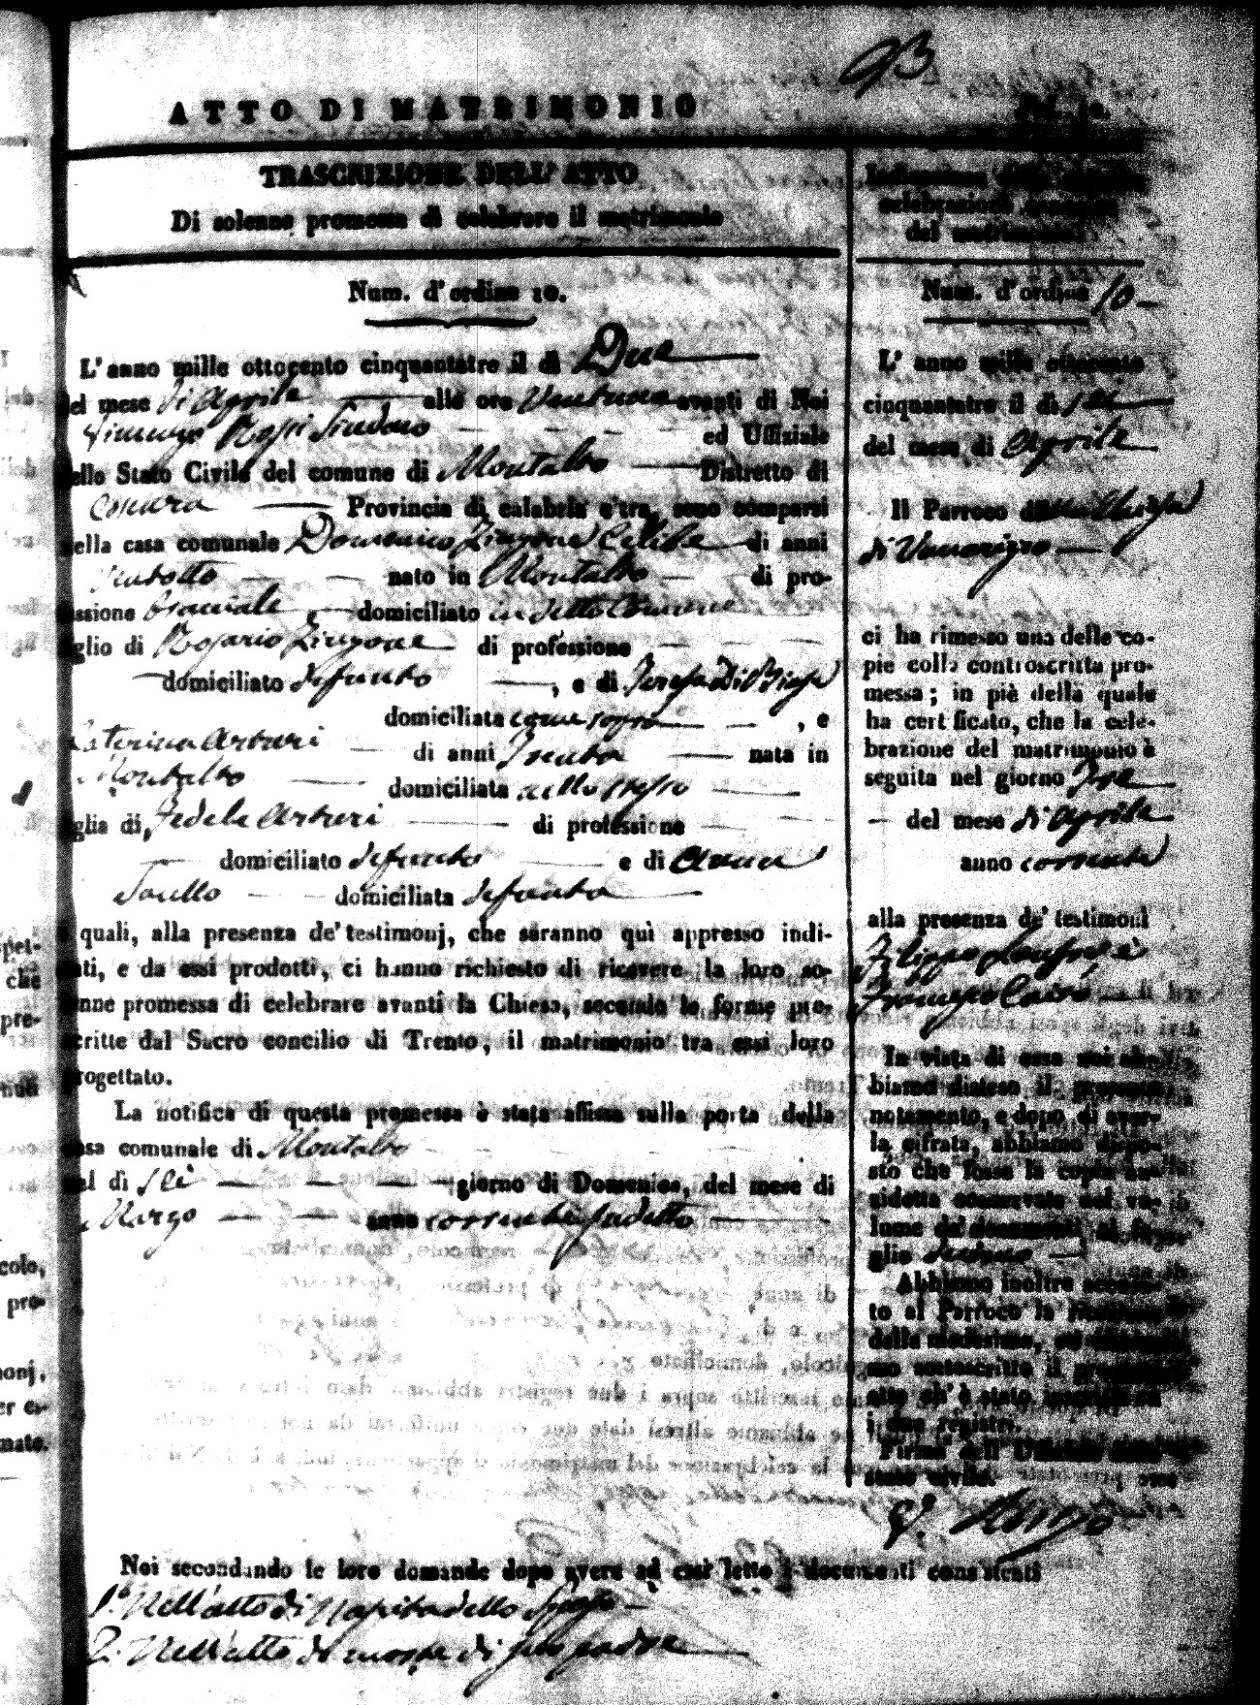 93
ATTO DI MATRIMONIO
TRASCRIZIONE DELL' ATTO
Di solenne promessa di celebrare il matrimonio
Num. d'ordine 10.
L'anno mille ottocento cinquantatre il di Due
del mese di Aprile alle ore avanti di Noi
Sindaco ed Uffiziale
dello Stato Civile del comune di Montalto Distretto di
Cosenza Provincia di calabria c'tra, sono comparsi
nella casa comunale Domenico Zingone Celibe di anni
nato in Montalto di pro-
fessione Bracciale domiciliato in detto Comune
figlio di Rosario Zingone di professione
domiciliato defunto , e di Teresa Di Biase
domiciliata come sopra , e
Caterina Arturi di anni Trenta nata in
Montalto domiciliata nello stesso
figlia di Fedele Arturi di professione
domiciliato defunto e di Anna
domiciliata defunta
i quali, alla presenza de' testimonj, che saranno quì appresso indi-
cati, e da essi prodotti, ci hanno richiesto di ricevere la loro so-
lenne promessa di celebrare avanti la Chiesa, secondo le forme pre-
scritte dal Sacro concilio di Trento, il matrimonio tra essi loro
progettato.
La notifica di questa promessa è stata affissa sulla porta della
casa comunale di Montalto
nel di sei giorno di Domenica, del mese di
Marzo anno corrente sudetto
Noi secondando le loro domande dopo avere ad essi letto i documenti consistenti
1.° Nell'atto di Nascita dello Sposo
2.° Nell'atto di morte di suo padre
celebrazione
del matrimonio
Num. d'ordine 10
L' anno mille ottocento
cinquantatre il di sei
del mese di Aprile
Il Parroco della Chiesa
di
ci ha rimesso una delle co-
pie colla controscritta pro-
messa; in piè della quale
ha certificato, che la cele-
brazione del matrimonio è
seguita nel giorno Tre
del mese di Aprile
anno corrente
alla presenza de' testimonî
Filippo è
Francesco Cairò
In vista di essa noi ab-
biamo disteso il presente
notamento, e dopo di aver-
la cifrata, abbiamo dispo-
sto che fosse la copia su-
cidetta conservata nel vo-
lume de' documenti al fo-
glio decimo
Abbiamo inoltre
to al Parroco la
della medesima,
mo sottoscritto il presente
atto ch' è stato
i due registri.
Firma dell' Uffiziale dello
stato civile.